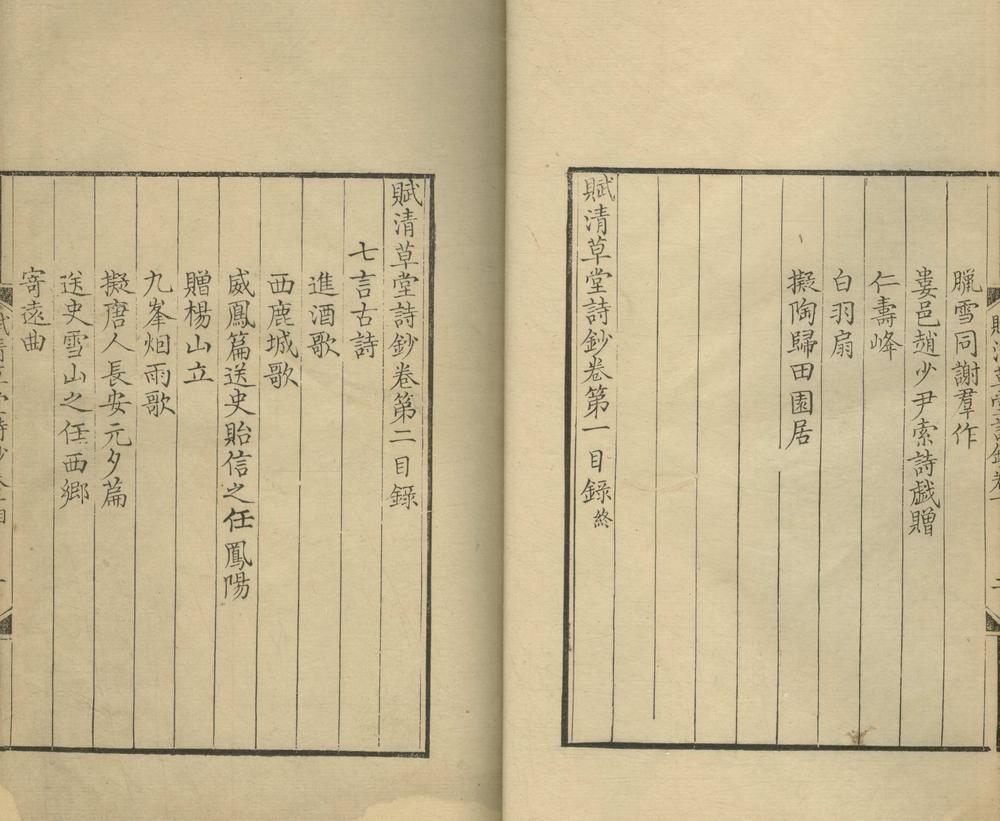 臘雪同謝羣作
婁邑趙少尹索詩戯贈
仁壽峰
白羽扇
擬陶歸田園居
賦清草堂詩鈔卷第一目録終
賦清草堂詩鈔卷第二目録
七言古詩
進酒歌
西鹿城歌
威鳳篇送史貽信之任鳳陽
贈楊山立
九峯烟雨歌
擬唐人長安元夕篇
送史雪山之任西鄉
寄遠曲